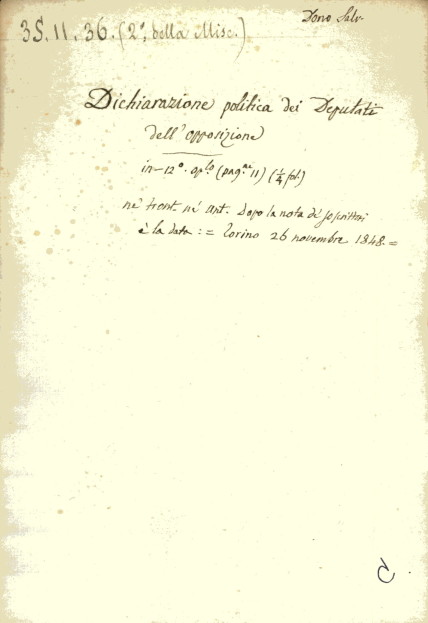 Dono Salv.
35. 11. 36. (2º, della Misc.)
Dichiarazione politica dei Deputati
dell'opposizione
in-12º. op.lo (pag.ne 11) (1/4 fol.)
nè front. nè ant. Dopo la nota di
è la data := Torino 26 novembre 1848.=